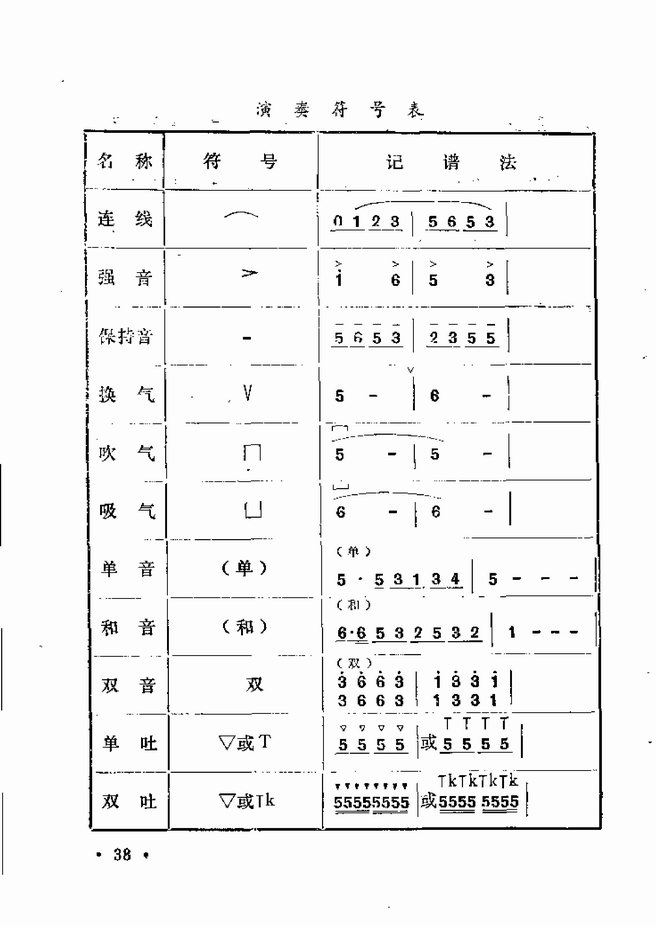 演奏符号表
名称 符号 记谱法
连线 ⌒ 0 1 2 3 | 5 6 5 3 |
强音 > 1 6 | 5 3 |
保持音 - 5 6 5 3 | 2 3 5 5 |
换气 V 5 - | 6 - |
吹气 ⊓ 5 - | 5 - |
吸气 ⊔ 6 - | 6 - |
(单)
单音 (单) 5 · 5 3 1 3 4 | 5 - - -
(和)
和音 (和) 6·6 5 3 2 5 3 2 | 1 - - -
(双)
双音 双 3 6 6 3 | 1 3 3 1 |
3 6 6 3 | 1 3 3 1 |
▽ ▽ ▽ ▽ T T T T
单吐 ▽或T 5 5 5 5 |或5 5 5 5 |
▼▼▼▼▼▼▼▼ TkTkTkTk
双吐 ▽或Tk 55555555 |或5555 5555 |
· 38 ·